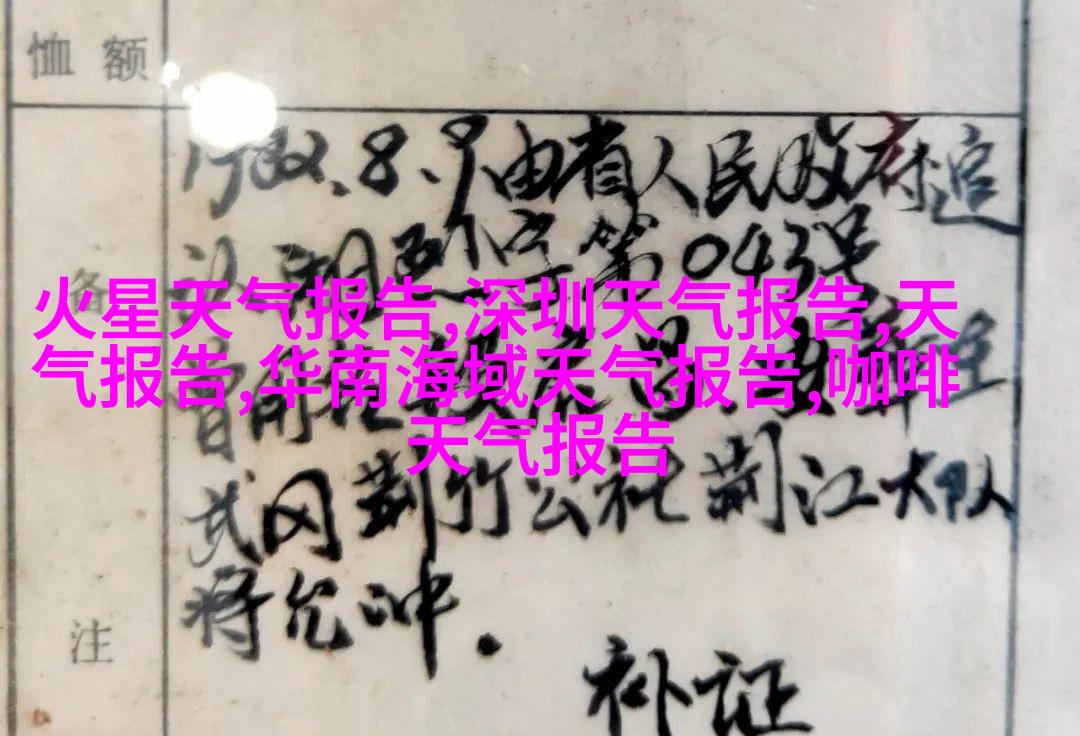 恤额
1982.8.9由省人民政府追
认 湘烈字第043号
备
火星天气报告,深圳天气报告,天
气报告,华南海域天气报告,咖啡
天气报告
武冈荆竹公社荆江大队
将允冲.
注
补证